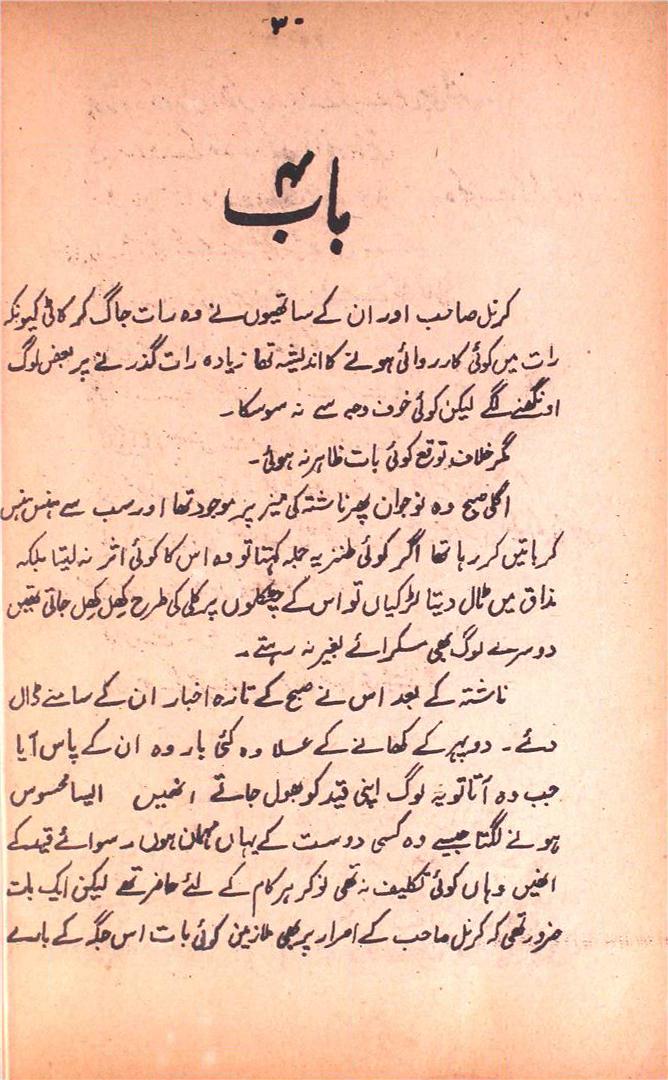 ۳۰
باب ۴
کرنل صاحب اور ان کے ساتھیوں نے وہ رات جاگ کر کاٹی کیونکہ
رات میں کوئی کارروائی ہونے کا اندیشہ تھا زیادہ رات گذرنے پر بعض لوگ
اونگھنے لگے لیکن کوئی خوف وجہ سے نہ سوسکا۔
مگر خلاف توقع کوئی بات ظاہر نہ ہوئی۔
اگلی صبح وہ نوجوان پھر ناشتہ کی میز پر موجود تھا اور سب سے ہنس ہنس
کر باتیں کر رہا تھا اگر کوئی طنزیہ جملہ کہتا تو وہ اس کا کوئی اثر نہ لیتا بلکہ
مذاق میں ٹال دیتا لڑکیاں تو اس کے چٹکلوں پر کلی کی طرح کھل کھل جاتی تھیں
دوسرے لوگ بھی مسکرائے بغیر نہ رہتے۔
ناشتہ کے بعد اس نے صبح کے تازہ اخبار ان کے سامنے ڈال
دئے۔ دوپہر کے کھانے کے علاوہ کئی بار وہ ان کے پاس آیا
جب وہ آتا تو یہ لوگ اپنی قید کو بھول جاتے انھیں ایسا محسوس
ہونے لگتا جیسے وہ کسی دوست کے یہاں مہمان ہوں، سوائے قید کے
انھیں وہاں کوئی تکلیف نہ تھی نوکر ہر کام کے لئے حاضر تھے لیکن ایک بات
ضرور تھی کہ کرنل صاحب کے اصرار پر بھی ملازمین کوئی بات اس جگہ کے بارے